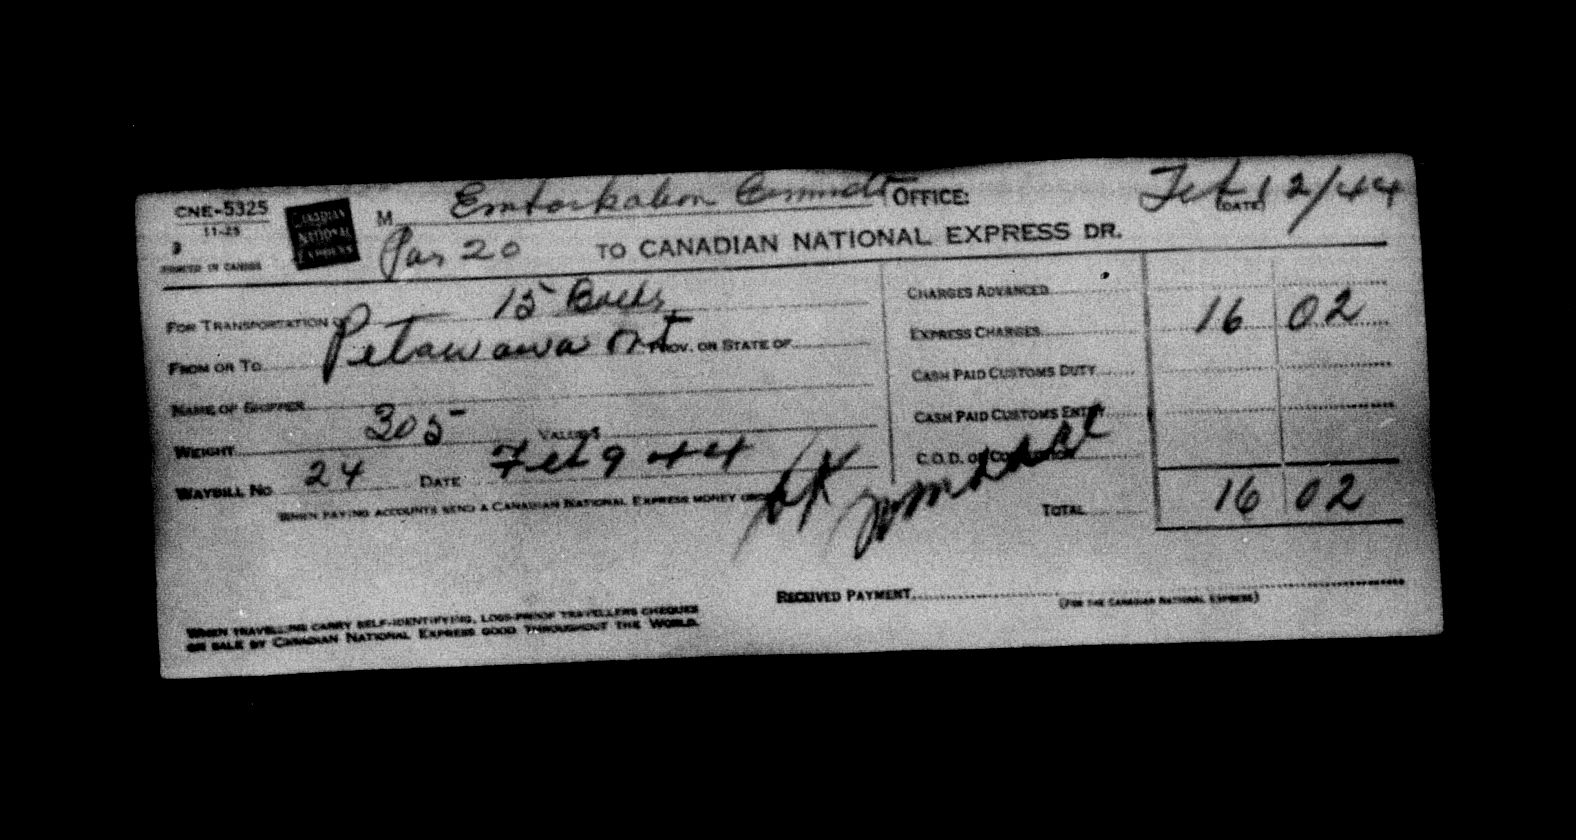 CNE-5325
11-25
3
PRINTED IN CANADA
CANADIAN
NATIONAL
EXPRESS
M Embarkation Commdt OFFICE:
Feb 12/44
(DATE)
Par 20 TO CANADIAN NATIONAL EXPRESS DR.
FOR TRANSPORTATION OF 15 Bdls
FROM OR TO Petawawa Ont PROV. OR STATE OF
NAME OF SHIPPER
WEIGHT 305 VALUE $
WAYBILL NO 24 DATE Feb 9 44
WHEN PAYING ACCOUNTS SEND A CANADIAN NATIONAL EXPRESS MONEY ORDER
CHARGES ADVANCED
EXPRESS CHARGES 16 02
CASH PAID CUSTOMS DUTY
CASH PAID CUSTOMS ENTRY
C.O.D. OR COLLECTION
TOTAL 16 02
OK
RECEIVED PAYMENT
(FOR THE CANADIAN NATIONAL EXPRESS)
WHEN TRAVELLING CARRY SELF-IDENTIFYING, LOSS-PROOF TRAVELLERS CHEQUES
ON SALE BY CANADIAN NATIONAL EXPRESS GOOD THROUGHOUT THE WORLD.